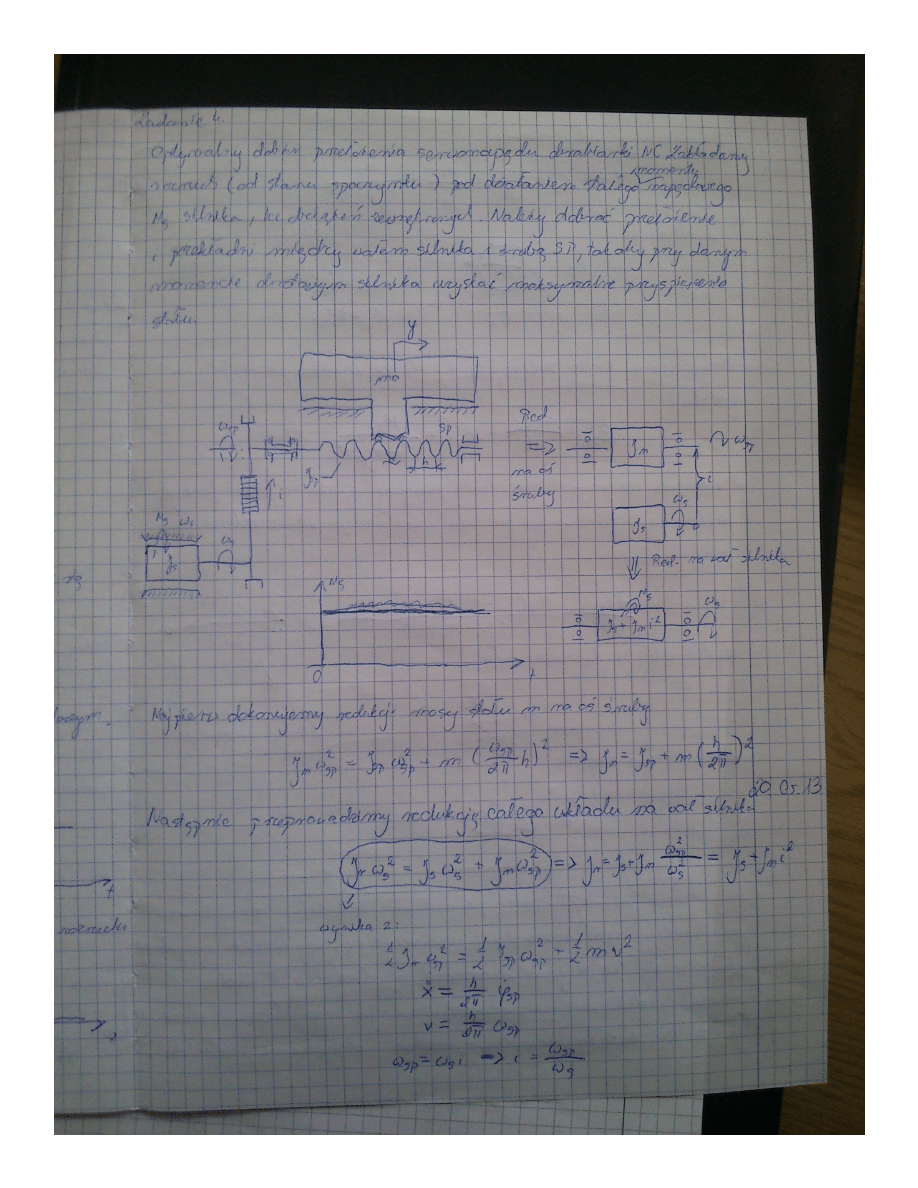 Zadanie 4.
Optymalny dobór przełożenia serwonapędu obrabiarki NC. Zakładamy
momentu
rozruch (od stanu spoczynku) pod działaniem stałego napędowego
Ms silnika, bez obciążeń zewnętrznych. Należy dobrać przełożenie
i przekładni między wałem silnika i śrubą ST, tak aby przy danym
momencie obrotowym silnika uzyskać maksymalne przyspieszenie
stołu.
y
m
ωsp
Sp
h
i
Ms
ωs
Js
Red
=>
na oś
śruby
Jm
ωsp
i
Js
ωs
Red. na wał silnika
Ms
Js + Jm i²
ωs
Ms
0
t
Najpierw dokonujemy redukcji masy stołu m na oś śruby
Jm ωsp² = Jsp ωsp² + m (ωsp/2π h)² => Jm = Jsp + m (h/2π)²
20.05.13
Następnie przeprowadzamy redukcję całego układu na wał silnika
Jn ωs² = Js ωs² + Jm ωsp² => Jn = Js + Jm ωsp²/ωs² = Js + Jm i²
wynika z:
1/2 Jm ωsp² = 1/2 Jsp ωsp² + 1/2 m v²
ẋ = h/2π φ̇sp
v = h/2π ωsp
ωsp = ωs i => i = ωsp/ωs
rozruchu
t